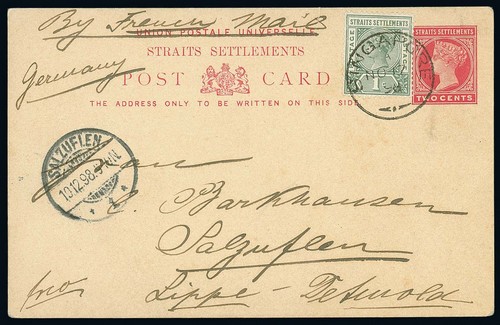 By French Mail
UNION POSTALE UNIVERSELLE
STRAITS SETTLEMENTS
Germany
POST CARD
THE ADDRESS ONLY TO BE WRITTEN ON THIS SIDE
STRAITS SETTLEMENTS
POSTAGE POSTAGE
1
SINGAPORE
NO
98
STRAITS SETTLEMENTS
TWO CENTS
SALZUFLEN
10.12.98
C. Barkhausen
Salzuflen
Lippe - Detmold